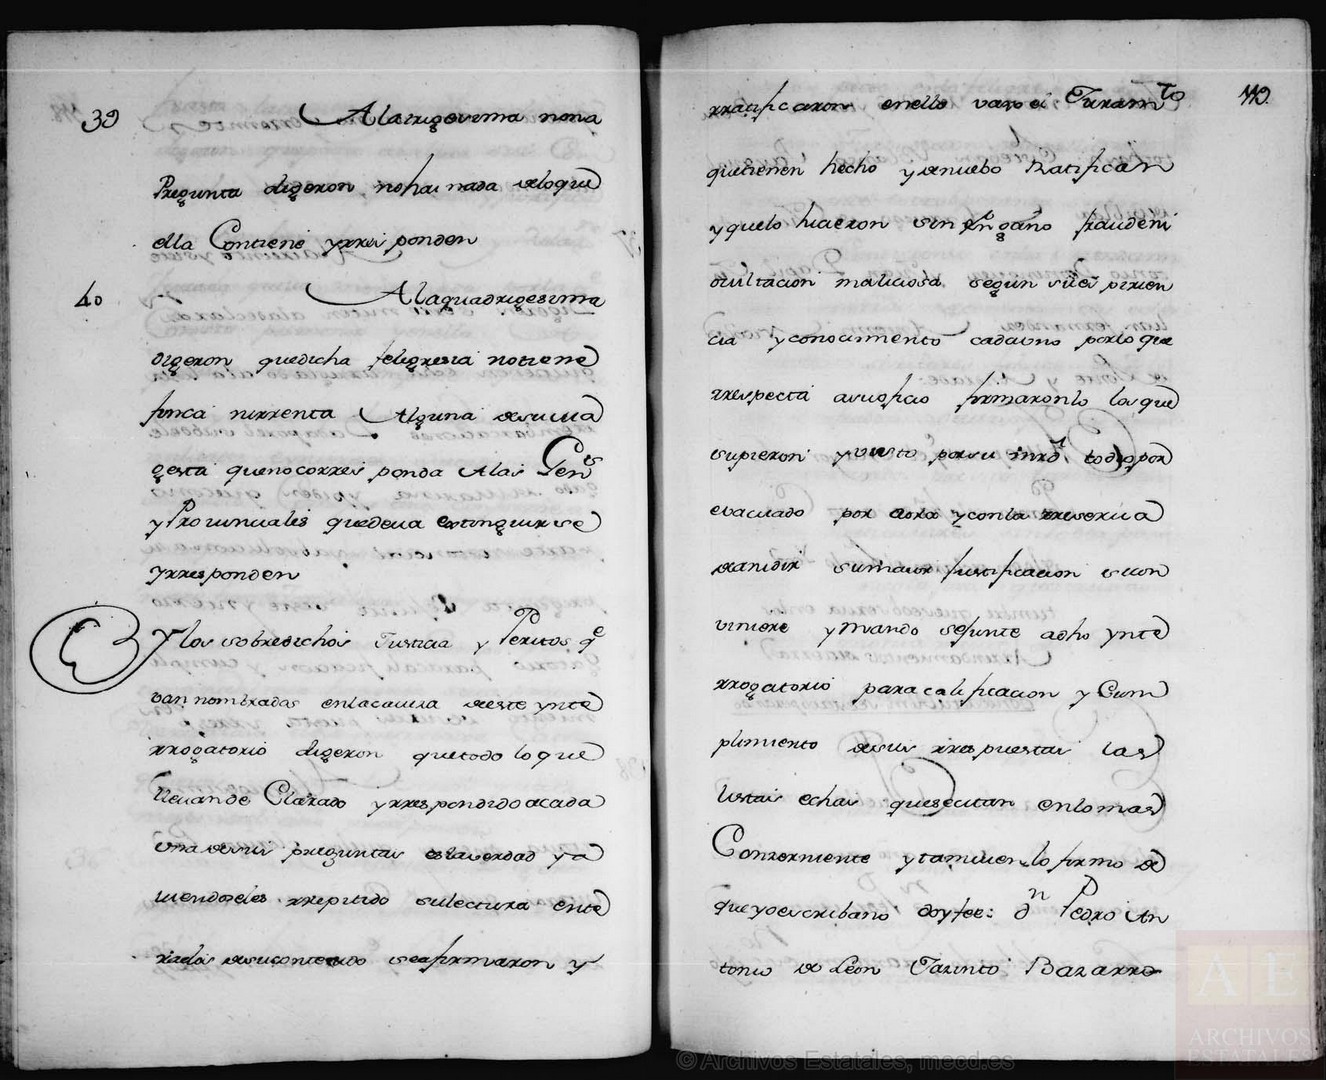 39
A la trigesima nona
Pregunta digeron no hai nada de lo que
ella Contiene y rres ponden
40
A la quadrigesima
digeron que dicha feligresia no tiene
finca ni rrenta Alguna de su Ma
gesta que no corres ponda A las Gens
y Prouinciales que deua extinguirse
y rres ponden
Y los sobredichos Justicia y Peritos qe
van nombrados en la caueza de este ynte
rrogatorio digeron que todo lo que
lleuan de Clarado y rres pondido a cada
una de sus preguntas es la verdad y a
uiendoseles rrepitido su lectura ente
rados de su contenido se afirmaron y
119.
rratificaron en ello vaxo el Juramto
que tienen hecho y de nuebo Ratifican
y que lo hicieron sin Engaño fraude ni
ocultacion maliciosa segun su es perien
cia y conocimiento cada uno por lo que
rrespecta a su oficio firmaronlo los que
supieron y visto por su mrd todo por
evacuado por aora y con la rreserua
de anidir su maior justificacion si con
viniere y Mando se junte a dho ynte
rrogatorio para calificacion y Cum
plimiento de sus rres puestas las
listas echas que se citan en lo mas
Conzerniente y tamuien lo firmo de
que yo escribano doy fee: Dn Pedro An
tonio de Leon Jazinto Bazarro
© Archivos Estatales, mecd.es
AE
ARCHIVOS
ESTATALES